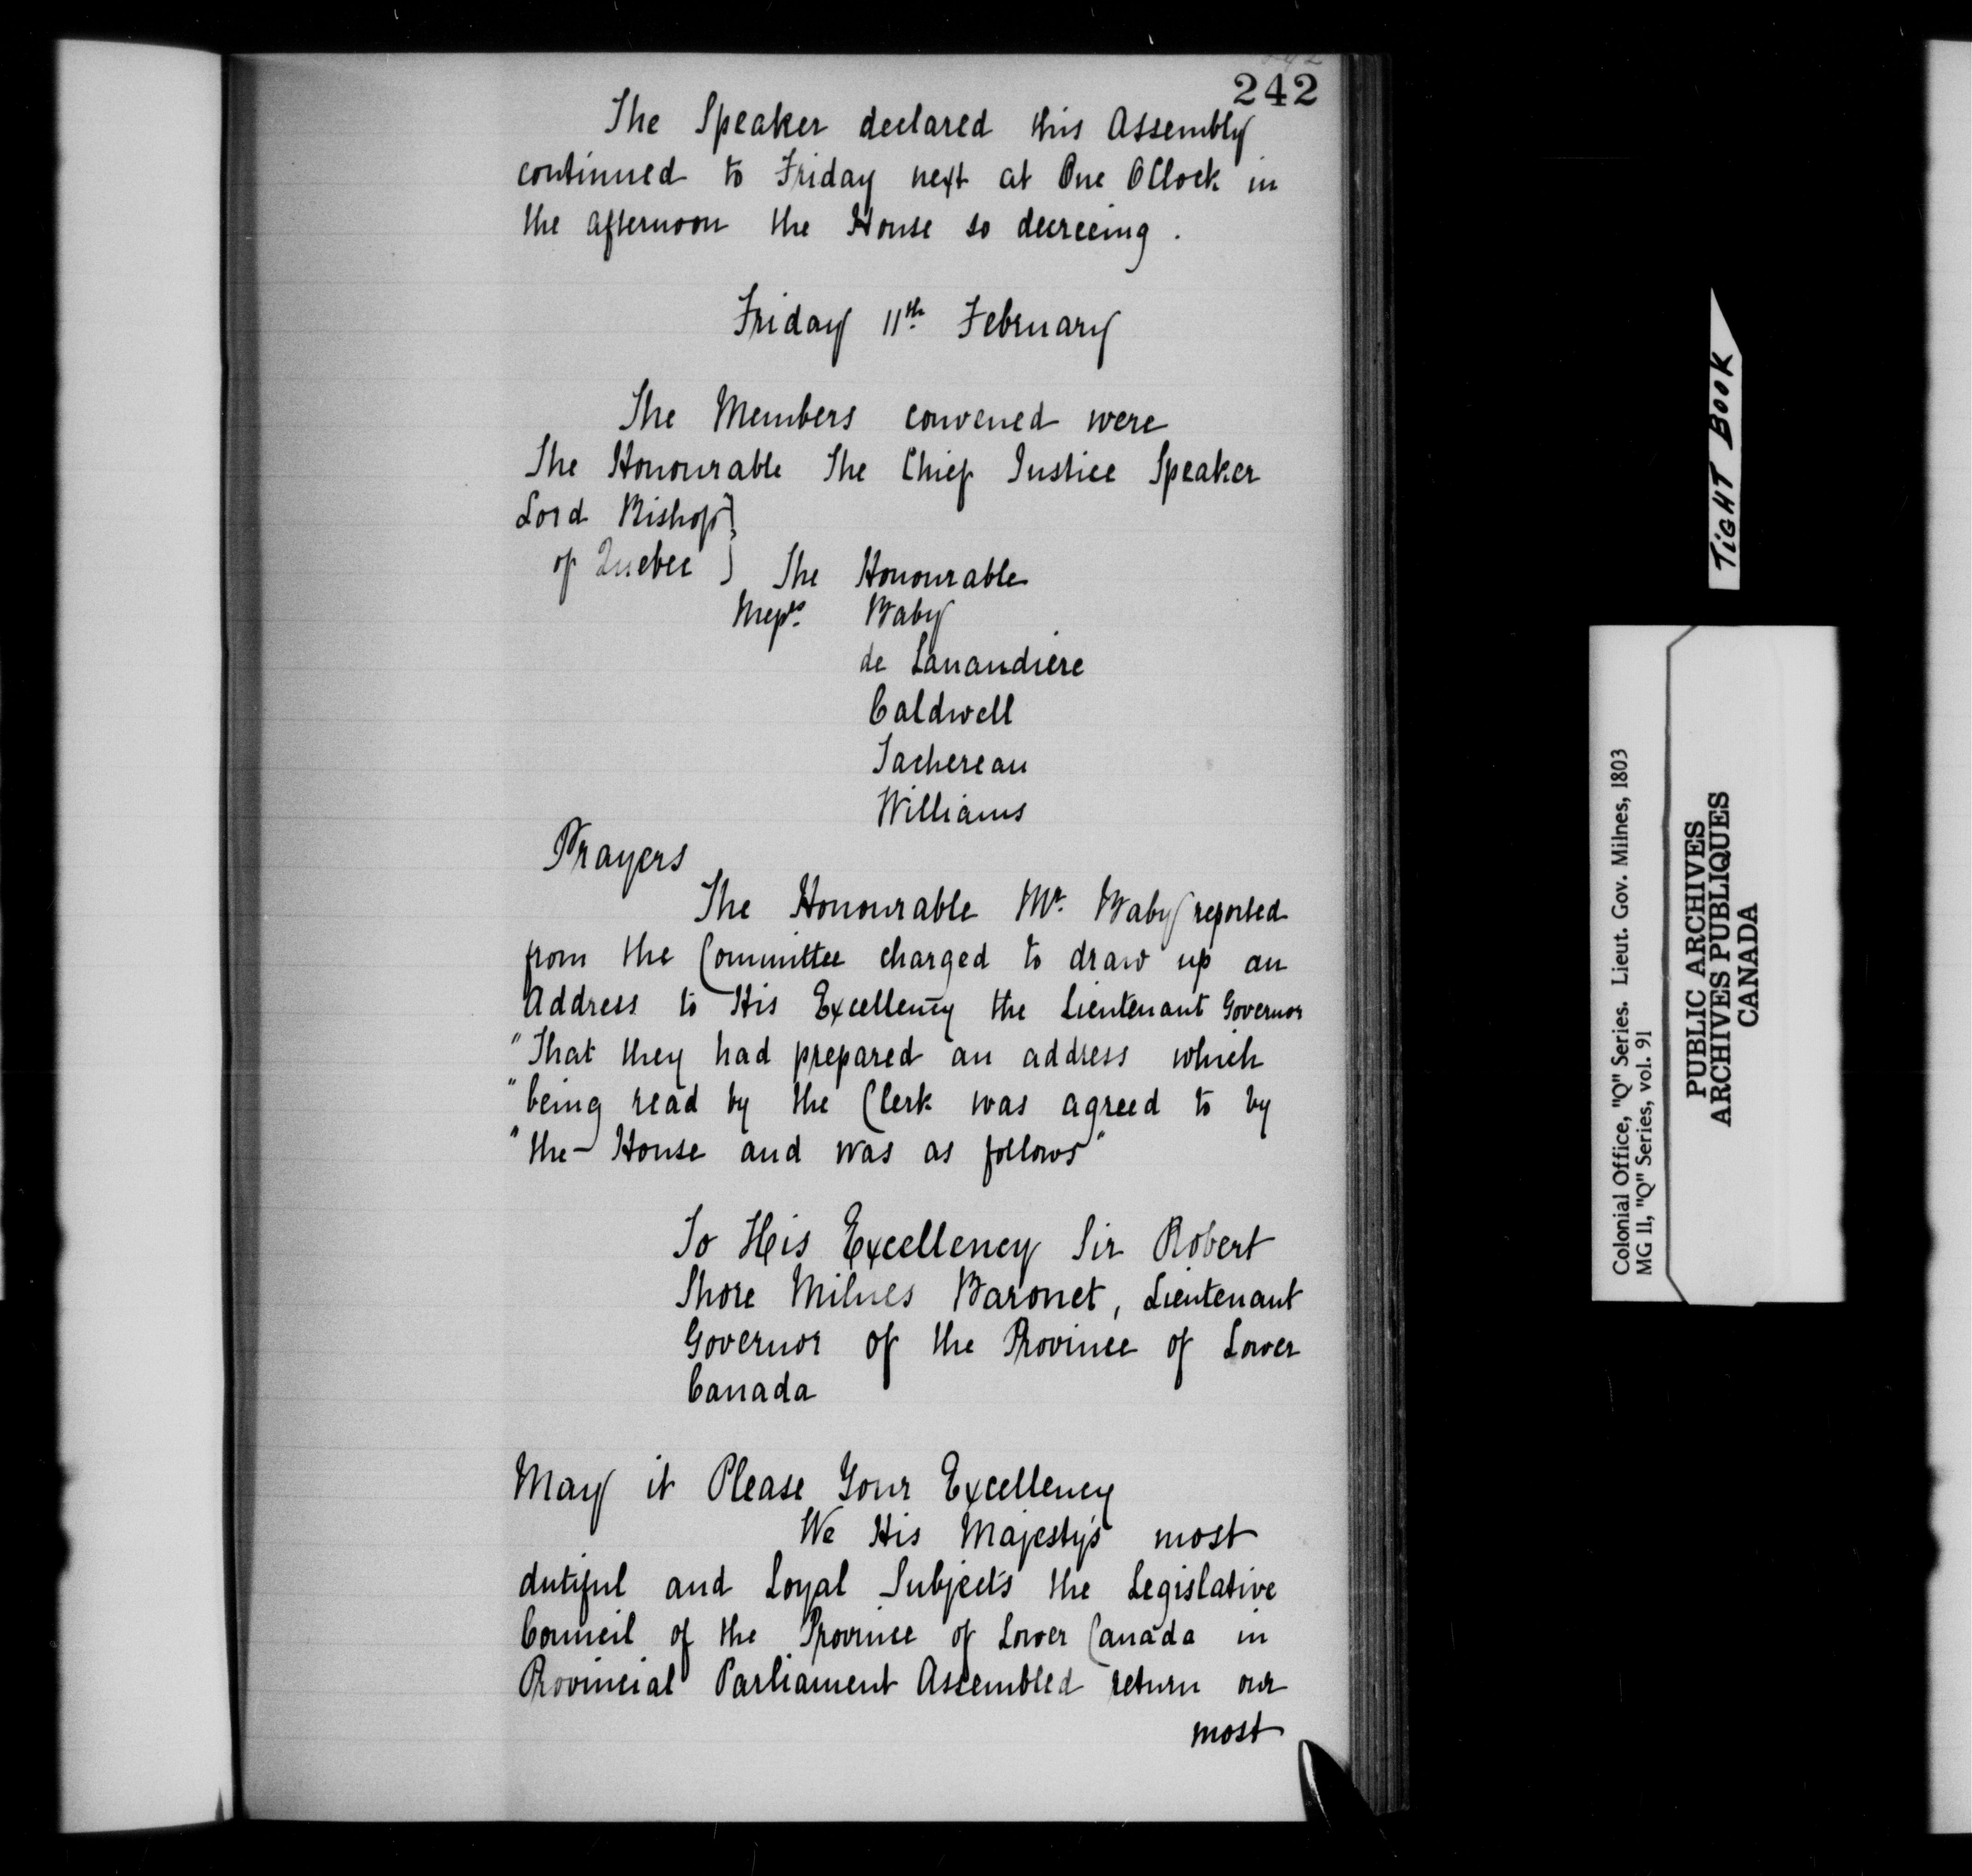 242
The Speaker declared this Assembly
continued to Friday next at One OClock in
the afternoon the House so decreeing .
Friday 11th February
The Members convened were
The Honourable The Chief Justice Speaker
Lord Bishop }
of Quebec } The Honourable
Messrs. Baby
de Lanaudiere
Caldwell
Tachereau
Williams
Prayers
The Honourable Mr. Baby reported
from the Committee charged to draw up an
Address to His Excellency the Lieutenant Governor
"That they had prepared an address which
"being read by the Clerk was agreed to by
"the - House and was as follows"
To His Excellency Sir Robert
Shore Milnes Baronet, Lieutenant
Governor of the Province of Lower
Canada
May it Please Your Excellency
We His Majesty's most
dutiful and Loyal Subjects the Legislative
Council of the Province of Lower Canada in
Provincial Parliament Assembled return our
most
TIGHT BOOK
Colonial Office, "Q" Series. Lieut. Gov. Milnes, 1803
MG 11, "Q" Series, vol. 91
PUBLIC ARCHIVES
ARCHIVES PUBLIQUES
CANADA